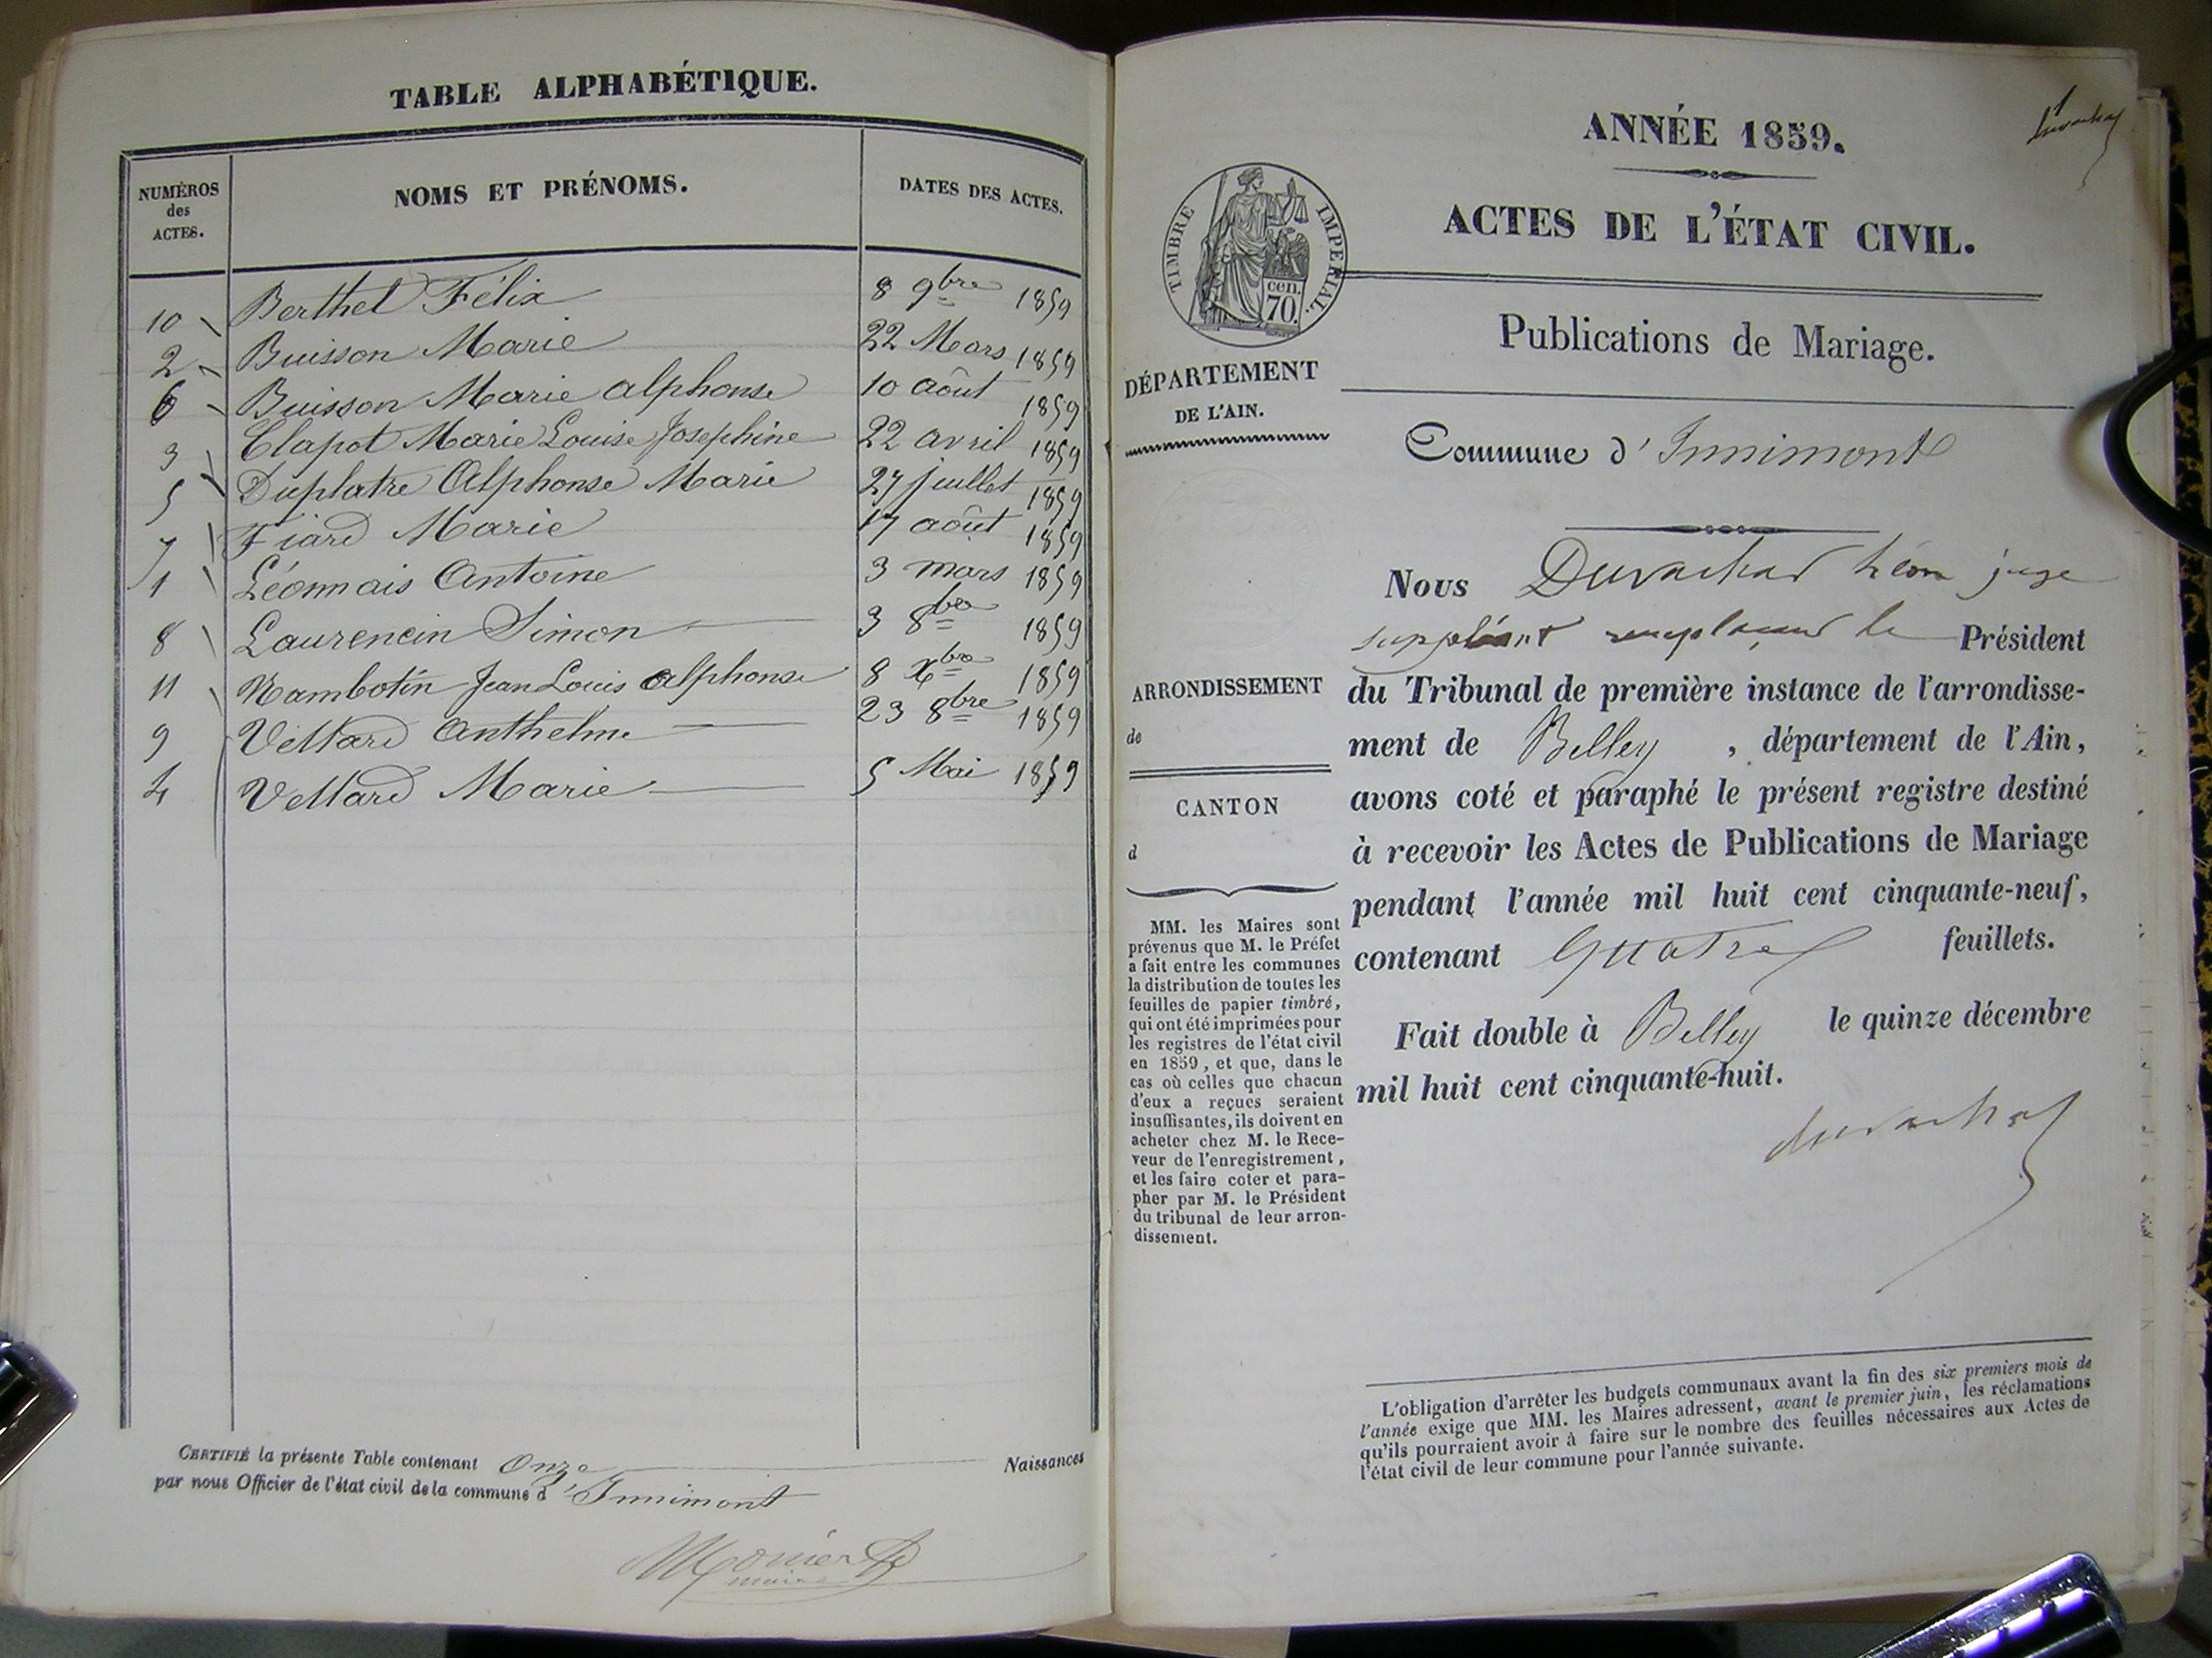 TABLE ALPHABÉTIQUE.
NUMÉROS
des
ACTES.
NOMS ET PRÉNOMS.
DATES DES ACTES.
10 Berthet Félix 8 9bre 1859
2 Buisson Marie 22 Mars 1859
6 Buisson Marie alphonse 10 août 1859
3 Clapot Marie Louise Josephine 22 avril 1859
5 Duplatre Alphonse Marie 27 juillet 1859
7 Fiard Marie 17 août 1859
1 Léonnais Antoine 3 mars 1859
8 Laurencin Simon 3 8bre 1859
11 Nambotin Jean Louis alphonse 8 xbre 1859
9 Vettard Anthelme 23 8bre 1859
4 Vettard Marie 5 Mai 1859
CERTIFIÉ la présente Table contenant Onze Naissances
par nous Officier de l'état civil de la commune d'Innimont
Monier
maire
ANNÉE 1859.
ACTES DE L'ÉTAT CIVIL.
TIMBRE IMPÉRIAL.
cen.
70.
Publications de Mariage.
DÉPARTEMENT
DE L'AIN.
Commune d'Innimont
Nous Duvachat Léon juge
suppléant remplaçant le Président
du Tribunal de première instance de l'arrondisse-
ment de Belley, département de l'Ain,
avons coté et paraphé le présent registre destiné
à recevoir les Actes de Publications de Mariage
pendant l'année mil huit cent cinquante-neuf,
contenant quatre feuillets.
Fait double à Belley le quinze décembre
mil huit cent cinquante-huit.
duvachat
ARRONDISSEMENT
de
CANTON
d
MM. les Maires sont
prévenus que M. le Préfet
a fait entre les communes
la distribution de toutes les
feuilles de papier timbré,
qui ont été imprimées pour
les registres de l'état civil
en 1859, et que, dans le
cas où celles que chacun
d'eux a reçues seraient
insuffisantes, ils doivent en
acheter chez M. le Rece-
veur de l'enregistrement,
et les faire coter et para-
pher par M. le Président
du tribunal de leur arron-
dissement.
L'obligation d'arrêter les budgets communaux avant la fin des six premiers mois de
l'année exige que MM. les Maires adressent, avant le premier juin, les réclamations
qu'ils pourraient avoir à faire sur le nombre des feuilles nécessaires aux Actes de
l'état civil de leur commune pour l'année suivante.